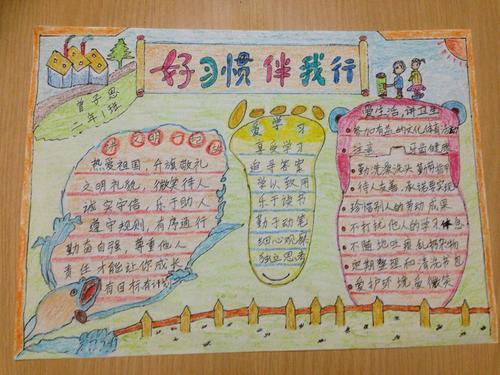 好习惯伴我行
曾子恩
二年1班
好文明习惯
热爱祖国，升旗敬礼
文明礼貌，微笑待人
诚实守信，乐于助人
遵守规则，有序通行
勤奋自强 尊重他人
责任才能让你成长
有目标有计划
爱学习
享受学习
追寻答案
学以致用
乐于读书
勤于动笔
细心观察
独立思考
爱生活，讲卫生
参加有益的文化体育活
注意 牙齿健康
勤洗澡洗头 勤剪指甲
待人友善，承诺要实现
珍惜别人的劳动成果
不打扰他人的学习休息
不随地吐痰乱扔杂物
定期整理和清洗书包
爱护环境